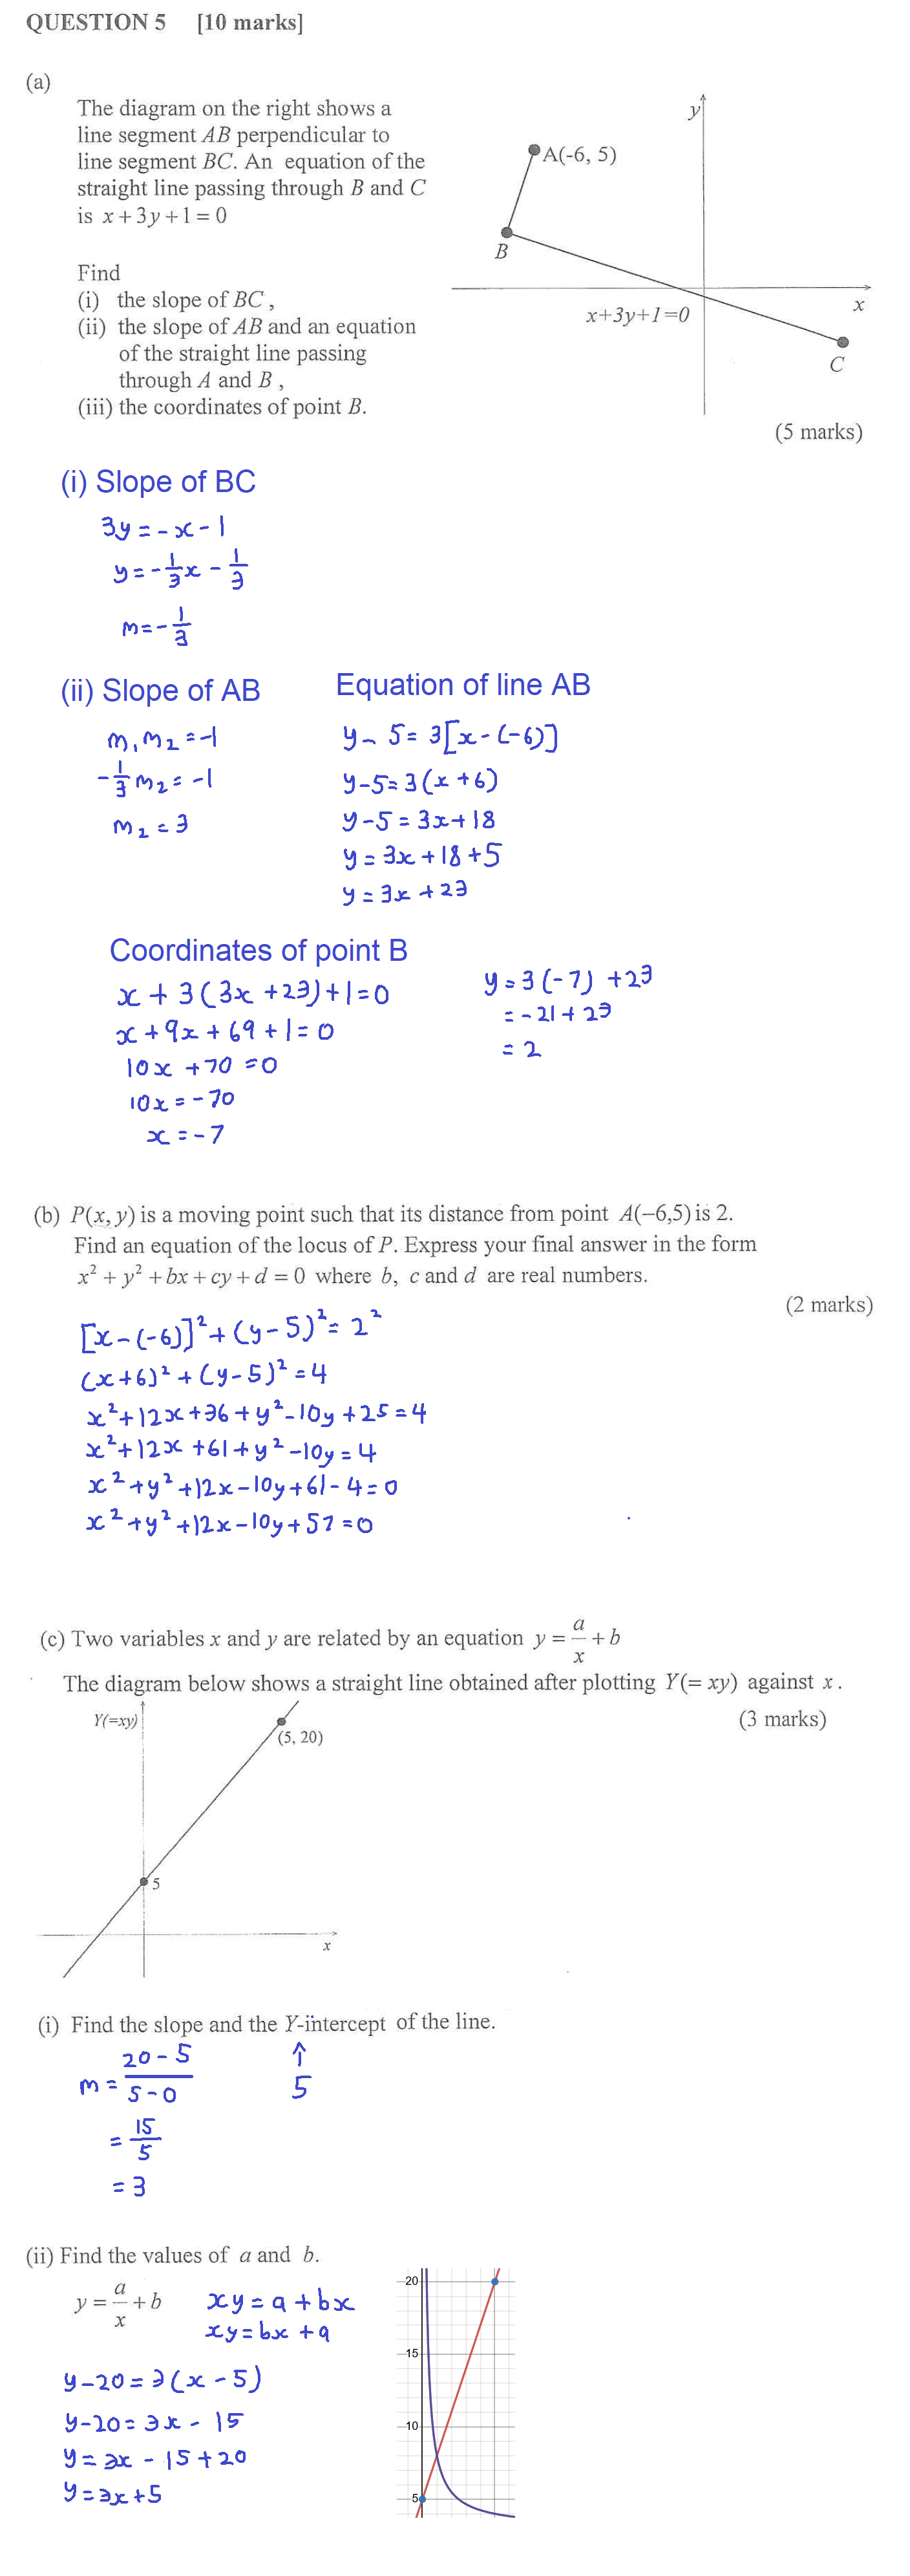 QUESTION 5 [10 marks]
(a)
The diagram on the right shows a
line segment AB perpendicular to
line segment BC. An equation of the
straight line passing through B and C
is x + 3y + 1 = 0
Find
(i) the slope of BC ,
(ii) the slope of AB and an equation
of the straight line passing
through A and B ,
(iii) the coordinates of point B.
y
A(-6, 5)
B
x
x+3y+1=0
C
(5 marks)
(i) Slope of BC
3y = -x - 1
y = -1/3 x - 1/3
m = -1/3
(ii) Slope of AB
m₁m₂ = -1
-1/3 m₂ = -1
m₂ = 3
Equation of line AB
y - 5 = 3[x - (-6)]
y - 5 = 3(x + 6)
y - 5 = 3x + 18
y = 3x + 18 + 5
y = 3x + 23
Coordinates of point B
x + 3(3x + 23) + 1 = 0
x + 9x + 69 + 1 = 0
10x + 70 = 0
10x = -70
x = -7
y = 3(-7) + 23
= -21 + 23
= 2
(b) P(x, y) is a moving point such that its distance from point A(−6,5) is 2.
Find an equation of the locus of P. Express your final answer in the form
x² + y² + bx + cy + d = 0 where b, c and d are real numbers.
(2 marks)
[x - (-6)]² + (y - 5)² = 2²
(x + 6)² + (y - 5)² = 4
x² + 12x + 36 + y² - 10y + 25 = 4
x² + 12x + 61 + y² - 10y = 4
x² + y² + 12x - 10y + 61 - 4 = 0
x² + y² + 12x - 10y + 57 = 0
(c) Two variables x and y are related by an equation y = a/x + b
The diagram below shows a straight line obtained after plotting Y(= xy) against x .
(3 marks)
Y(=xy)
(5, 20)
5
x
(i) Find the slope and the Y-intercept of the line.
m = (20 - 5)/(5 - 0)
= 15/5
= 3
↑
5
(ii) Find the values of a and b.
y = a/x + b
xy = a + bx
xy = bx + a
y - 20 = 3(x - 5)
y - 20 = 3x - 15
y = 3x - 15 + 20
y = 3x + 5
20
15
10
5